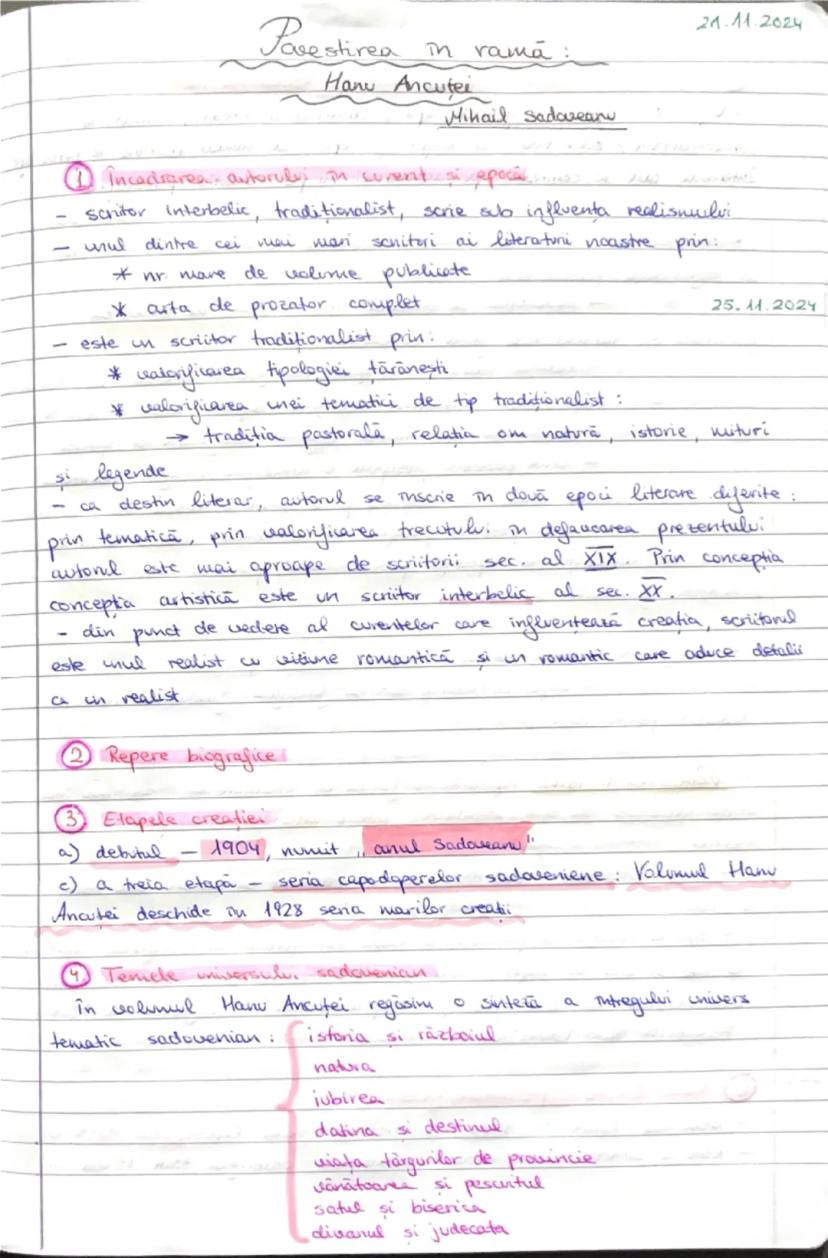 21.11.2024
Povestirea în ramă:
Hanu Ancuței
Mihail Sadoveanu
1 Încadrarea autorului în curent și epocă
- scriitor interbelic, tradiționalist, scrie sub influența realismului
- unul dintre cei mai mari scriitori ai literaturii noastre prin:
* nr mare de volume publicate
* arta de prozator complet
25.11.2024
- este un scriitor tradiționalist prin:
* valorificarea tipologiei țărănești
* valorificarea unei tematici de tip tradiționalist:
→ tradiția pastorală, relația om natură, istorie, mituri
și legende
- ca destin literar, autorul se înscrie în două epoci literare diferite:
prin tematică, prin valorificarea trecutului în defavoarea prezentului
autorul este mai aproape de scriitorii sec. al XIX. Prin concepția
concepția artistică este un scriitor interbelic al sec. XX.
- din punct de vedere al curentelor care influențează creația, scriitorul
este unul realist cu viziune romantică și un romantic care aduce detalii
ca un realist
2 Repere biografice
3 Etapele creației
a) debutul - 1904, numit "anul Sadoveanu"
c) a treia etapă - seria capodoperelor sadoveniene: Volumul Hanu
Ancuței deschide în 1928 seria marilor creații
4. Temele universului sadovenian
În volumul Hanu Ancuței regăsim o sinteză a întregului univers
tematic sadovenian: istoria și războiul
natura
iubirea
datina și destinul
viața târgurilor de provincie
vânătoarea și pescuitul
satul și biserica
divanul și judecata